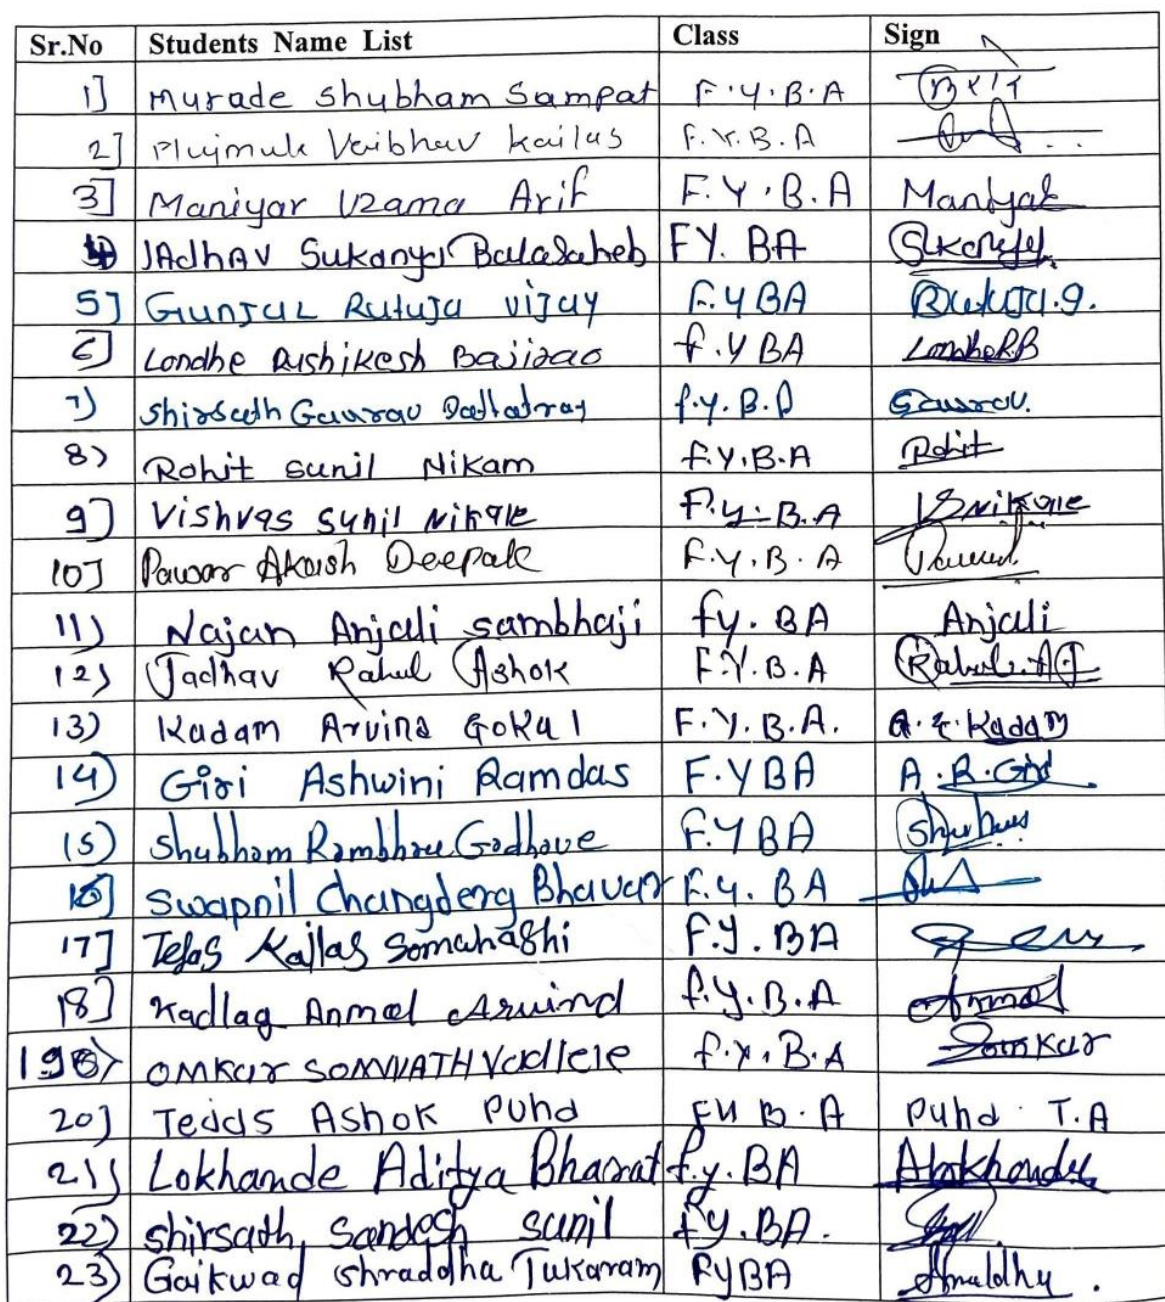 Sr.No Students Name List Class Sign
1] Murade Shubham Sampat F.Y.B.A
2] Vaibhav Kailas F.Y.B.A
3] Maniyar Uzama Arif F.Y.B.A Maniyar
4 JAdhAV Sukanya Balasaheb FY.BA
5] GunJUL RutuJa viJay F.Y BA RutuJa.g.
6] Londhe Rushikesh Bajirao f.Y BA LondheRB
7) Shirsath Gaurav Dattatray f.y.B.A Gaurav.
8) Rohit sunil Nikam f.Y.B.A Rohit
9] Vishvas Sunil Nikale F.y.B.A VSNikale
10] Pawar Akash Deepak F.Y.B.A
11) Najan Anjali sambhaji fy.BA Anjali
12) Jadhav Rahul Ashok F.Y.B.A Rahul.AJ
13) Kadam Arvind Gokul F.Y.B.A. A.G.Kadam
14) Giri Ashwini Ramdas F.Y BA A.R.Giri
15) Shubham Rambhau Godhave F.Y BA
16] Swapnil Changderg Bhavar F.Y.BA
17] Tejas Kailas Somahashi F.Y.BA
18] Kadlag Anmol Arvind f.y.B.A Anmol
19) OMKar SOMNATH Vadlele f.y.B.A Somkar
20] Tejas Ashok Pund FY B.A Pund T.A
21) Lokhande Aditya Bharat f.y.BA Alokhande
22) Shirsath Sandesh sunil fy.BA.
23) Gaikwad Shraddha Tukaram FYBA